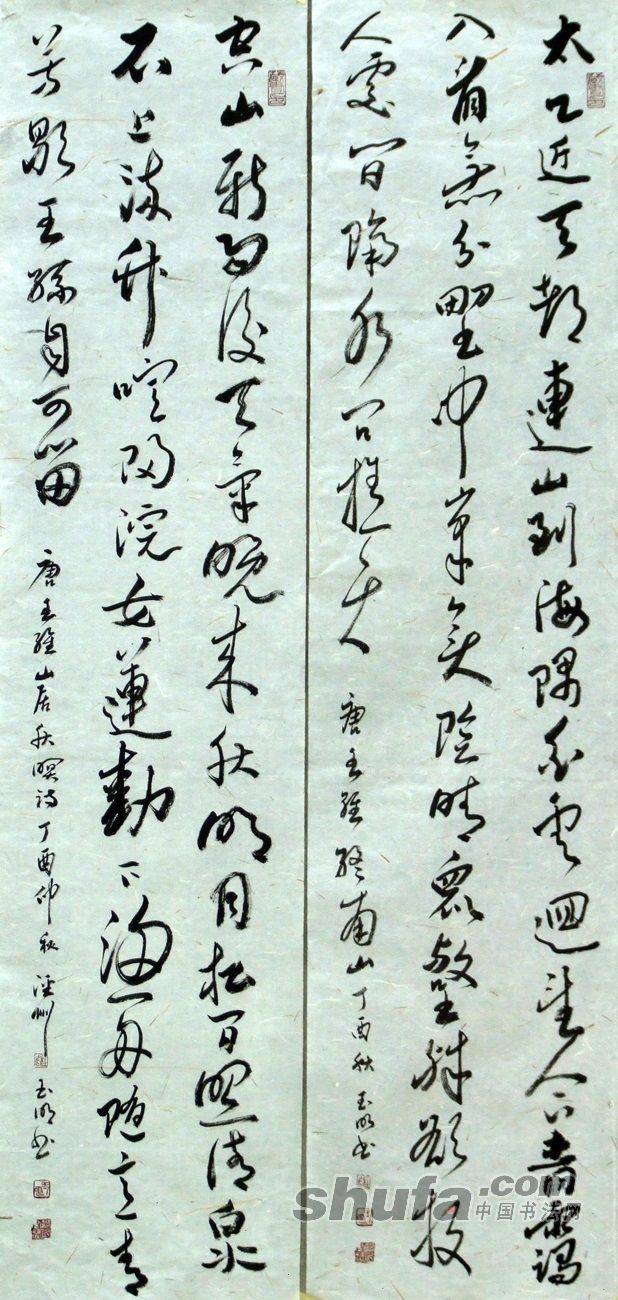 太乙近天都連山到海隅白雲迴望合青靄
入看無分野中峯變陰晴衆壑殊欲投
人處宿隔水問樵夫
唐王維終南山丁酉秋玉明書
空山新雨後天氣晚來秋明月松間照清泉
石上流竹喧歸浣女蓮動下漁舟隨意春
芳歇王孫自可留
唐王維山居秋暝詩丁酉仲秋涇州玉明書
shufa.com
中国书法网